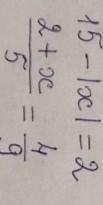 15 - |x| = 2
\frac{2 + x}{5} = \frac{4}{9}